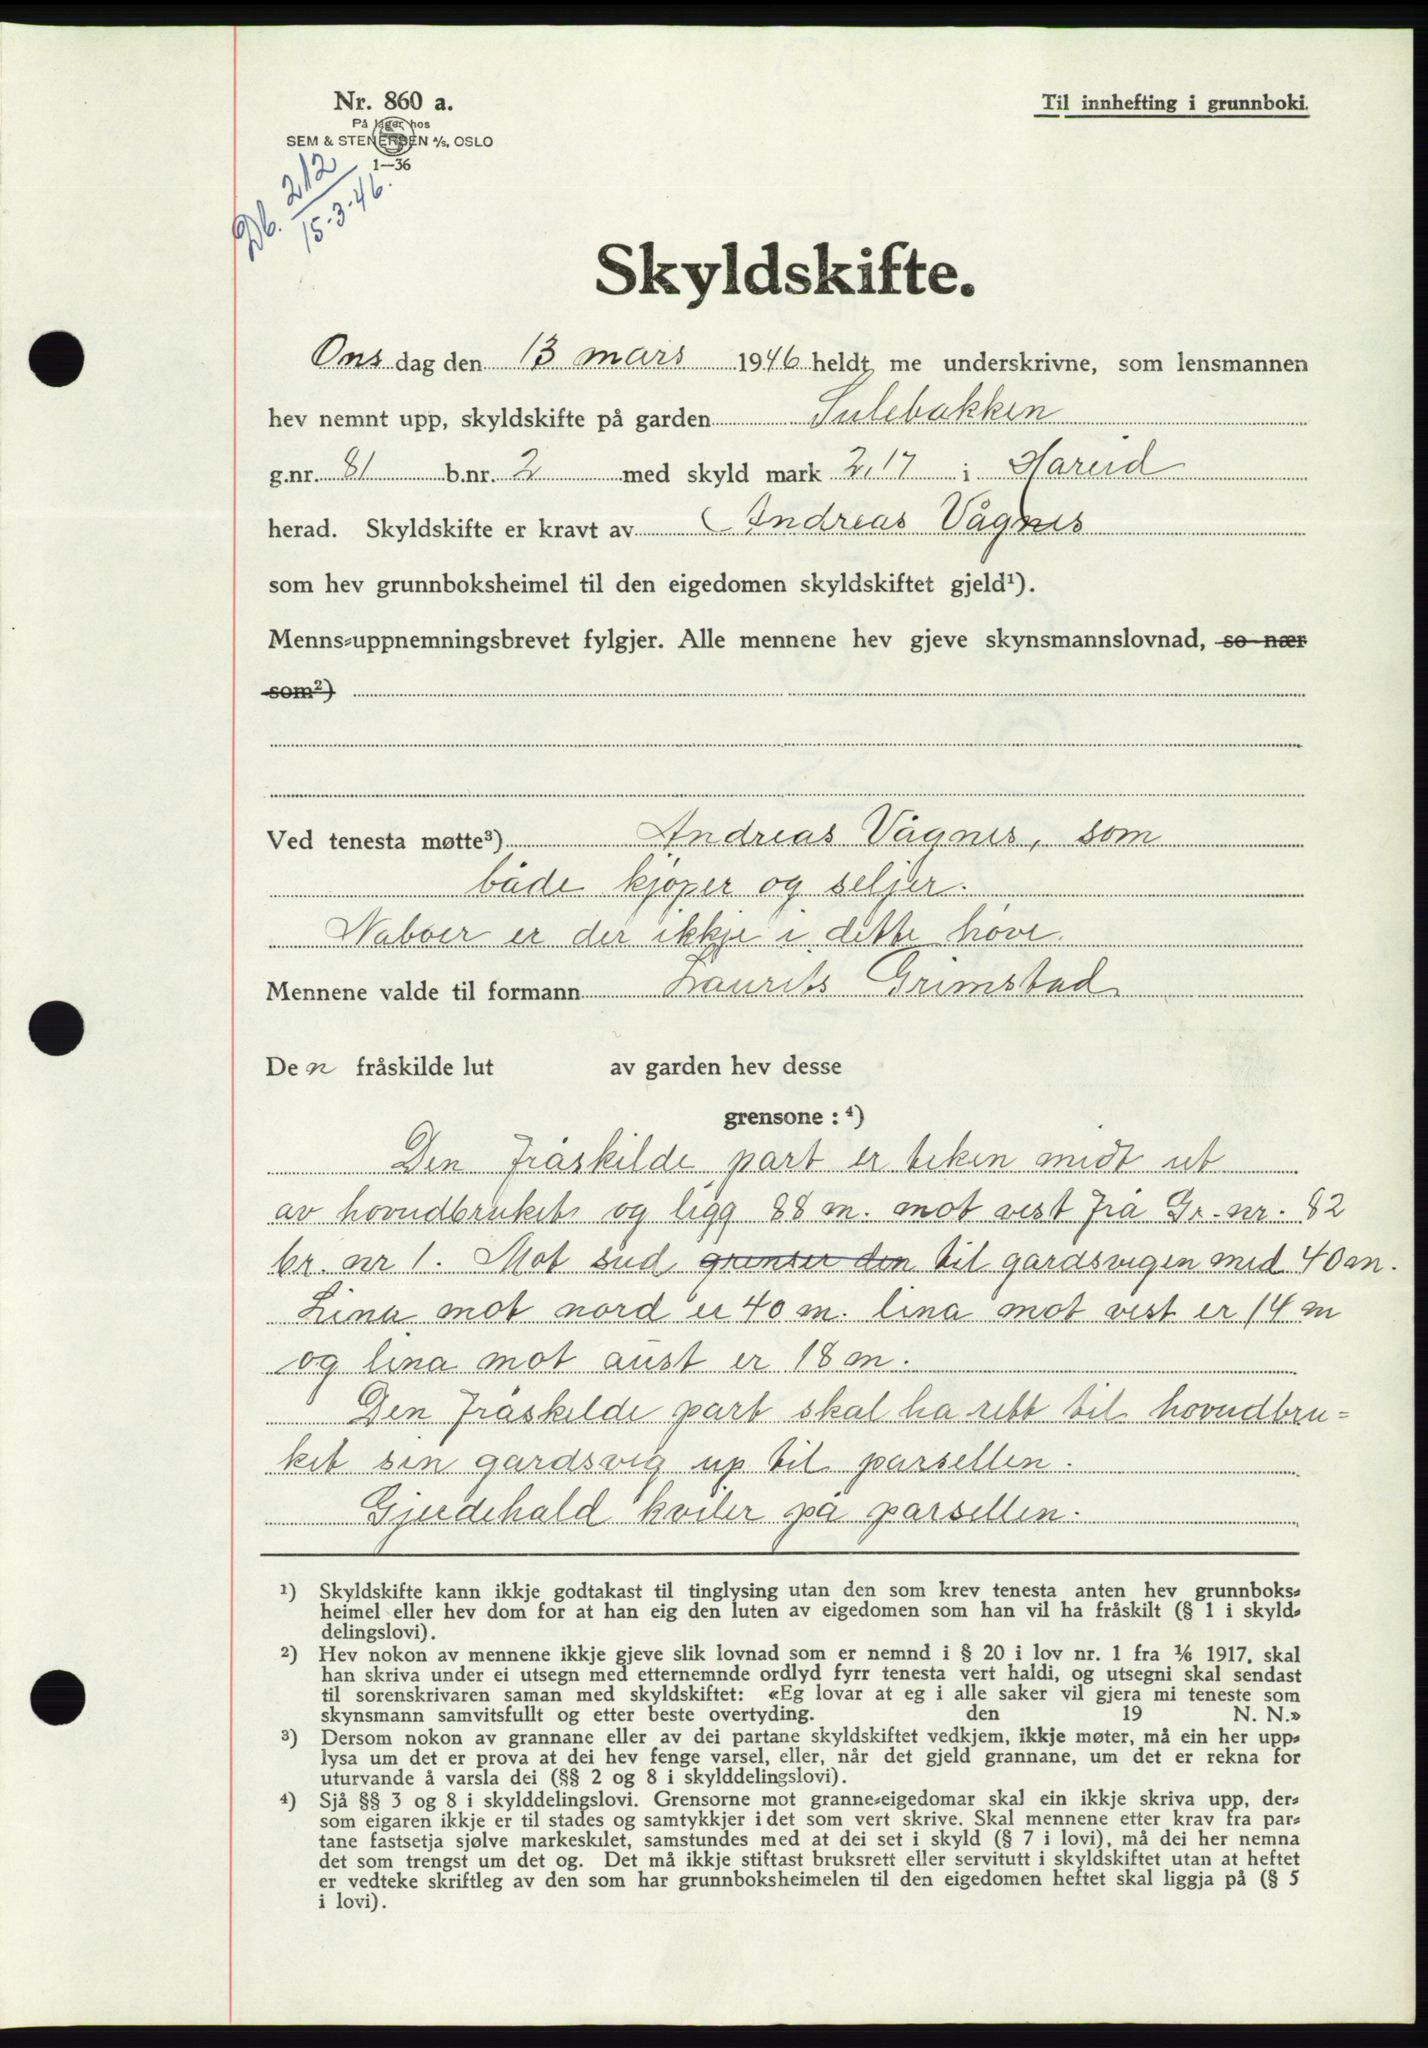 Nr. 860 a.
På lager hos
SEM & STENERSEN A/S, OSLO
1—36
Til innhefting i grunnboki.
Db. 212
15-3-46.
Skyldskifte.
Onsdag den 13 mars 1946 heldt me underskrivne, som lensmannen
hev nemnt upp, skyldskifte på garden Sulebakken
g.nr. 81 b.nr. 2 med skyld mark 2,17 i Hareid
herad. Skyldskifte er kravt av Andreas Vågnes
som hev grunnboksheimel til den eigedomen skyldskiftet gjeld¹).
Menns-uppnemningsbrevet fylgjer. Alle mennene hev gjeve skynsmannslovnad, so nær
som²)
Ved tenesta møtte³) Andreas Vågnes, som
både kjøper og seljer.
Naboer er der ikkje i dette høve.
Mennene valde til formann Laurits Grimstad
Den fråskilde lut av garden hev desse
grensone : ⁴)
Den fråskilde part er teken midt ut
av hovudbruket og ligg 88 m. mot vest frå Gr. nr. 82
br. nr 1. Mot sud grenser den til gardsvegen med 40 m.
Lina mot nord er 40 m. lina mot vest er 14 m
og lina mot aust er 18 m.
Den fråskilde part skal ha rett til hovudbru=
ket sin gardsveg up til parsellen.
Gjerdehald kviler på parsellen.
¹) Skyldskifte kann ikkje godtakast til tinglysing utan den som krev tenesta anten hev grunnboks-
heimel eller hev dom for at han eig den luten av eigedomen som han vil ha fråskilt (§ 1 i skyld-
delingslovi).
²) Hev nokon av mennene ikkje gjeve slik lovnad som er nemnd i § 20 i lov nr. 1 fra 1/6 1917, skal
han skriva under ei utsegn med etternemnde ordlyd fyrr tenesta vert haldi, og utsegni skal sendast
til sorenskrivaren saman med skyldskiftet: «Eg lovar at eg i alle saker vil gjera mi teneste som
skynsmann samvitsfullt og etter beste overtyding. den 19 N. N.»
³) Dersom nokon av grannane eller av dei partane skyldskiftet vedkjem, ikkje møter, må ein her upp-
lysa um det er prova at dei hev fenge varsel, eller, når det gjeld grannane, um det er rekna for
uturvande å varsla dei (§§ 2 og 8 i skylddelingslovi).
⁴) Sjå §§ 3 og 8 i skylddelingslovi. Grensorne mot granne-eigedomar skal ein ikkje skriva upp, der-
som eigaren ikkje er til stades og samtykkjer i det som vert skrive. Skal mennene etter krav fra par-
tane fastsetja sjølve markeskilet, samstundes med at dei set i skyld (§ 7 i lovi), må dei her nemna
det som trengst um det og. Det må ikkje stiftast bruksrett eller servitutt i skyldskiftet utan at heftet
er vedteke skriftleg av den som har grunnboksheimelen til den eigedomen heftet skal liggja på (§ 5
i lovi).